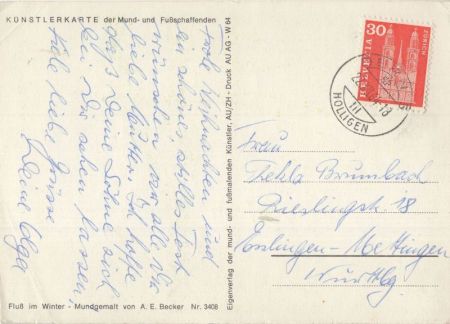 KÜNSTLERKARTE der Mund- und Fußschaffenden
Frohe Weihnachten und
ein schönes stilles Fest
wünschen wir alle Dir
liebe Mutter. Ich hoffe
daß Deine Söhne sich
bei Dir sehen lassen,
Liebe Grüsse
Deine Olga
Fluß im Winter - Mundgemalt von A. E. Becker Nr. 3408
Eigenverlag der mund- und fußmalenden Künstler, AU/ZH - Druck AU AG - W 64
30
HELVETIA
ZÜRICH
HOLLIGEN
Frau
Thekla Brumbach
Rieslingstr. 18
Esslingen-Mettingen
Württbg